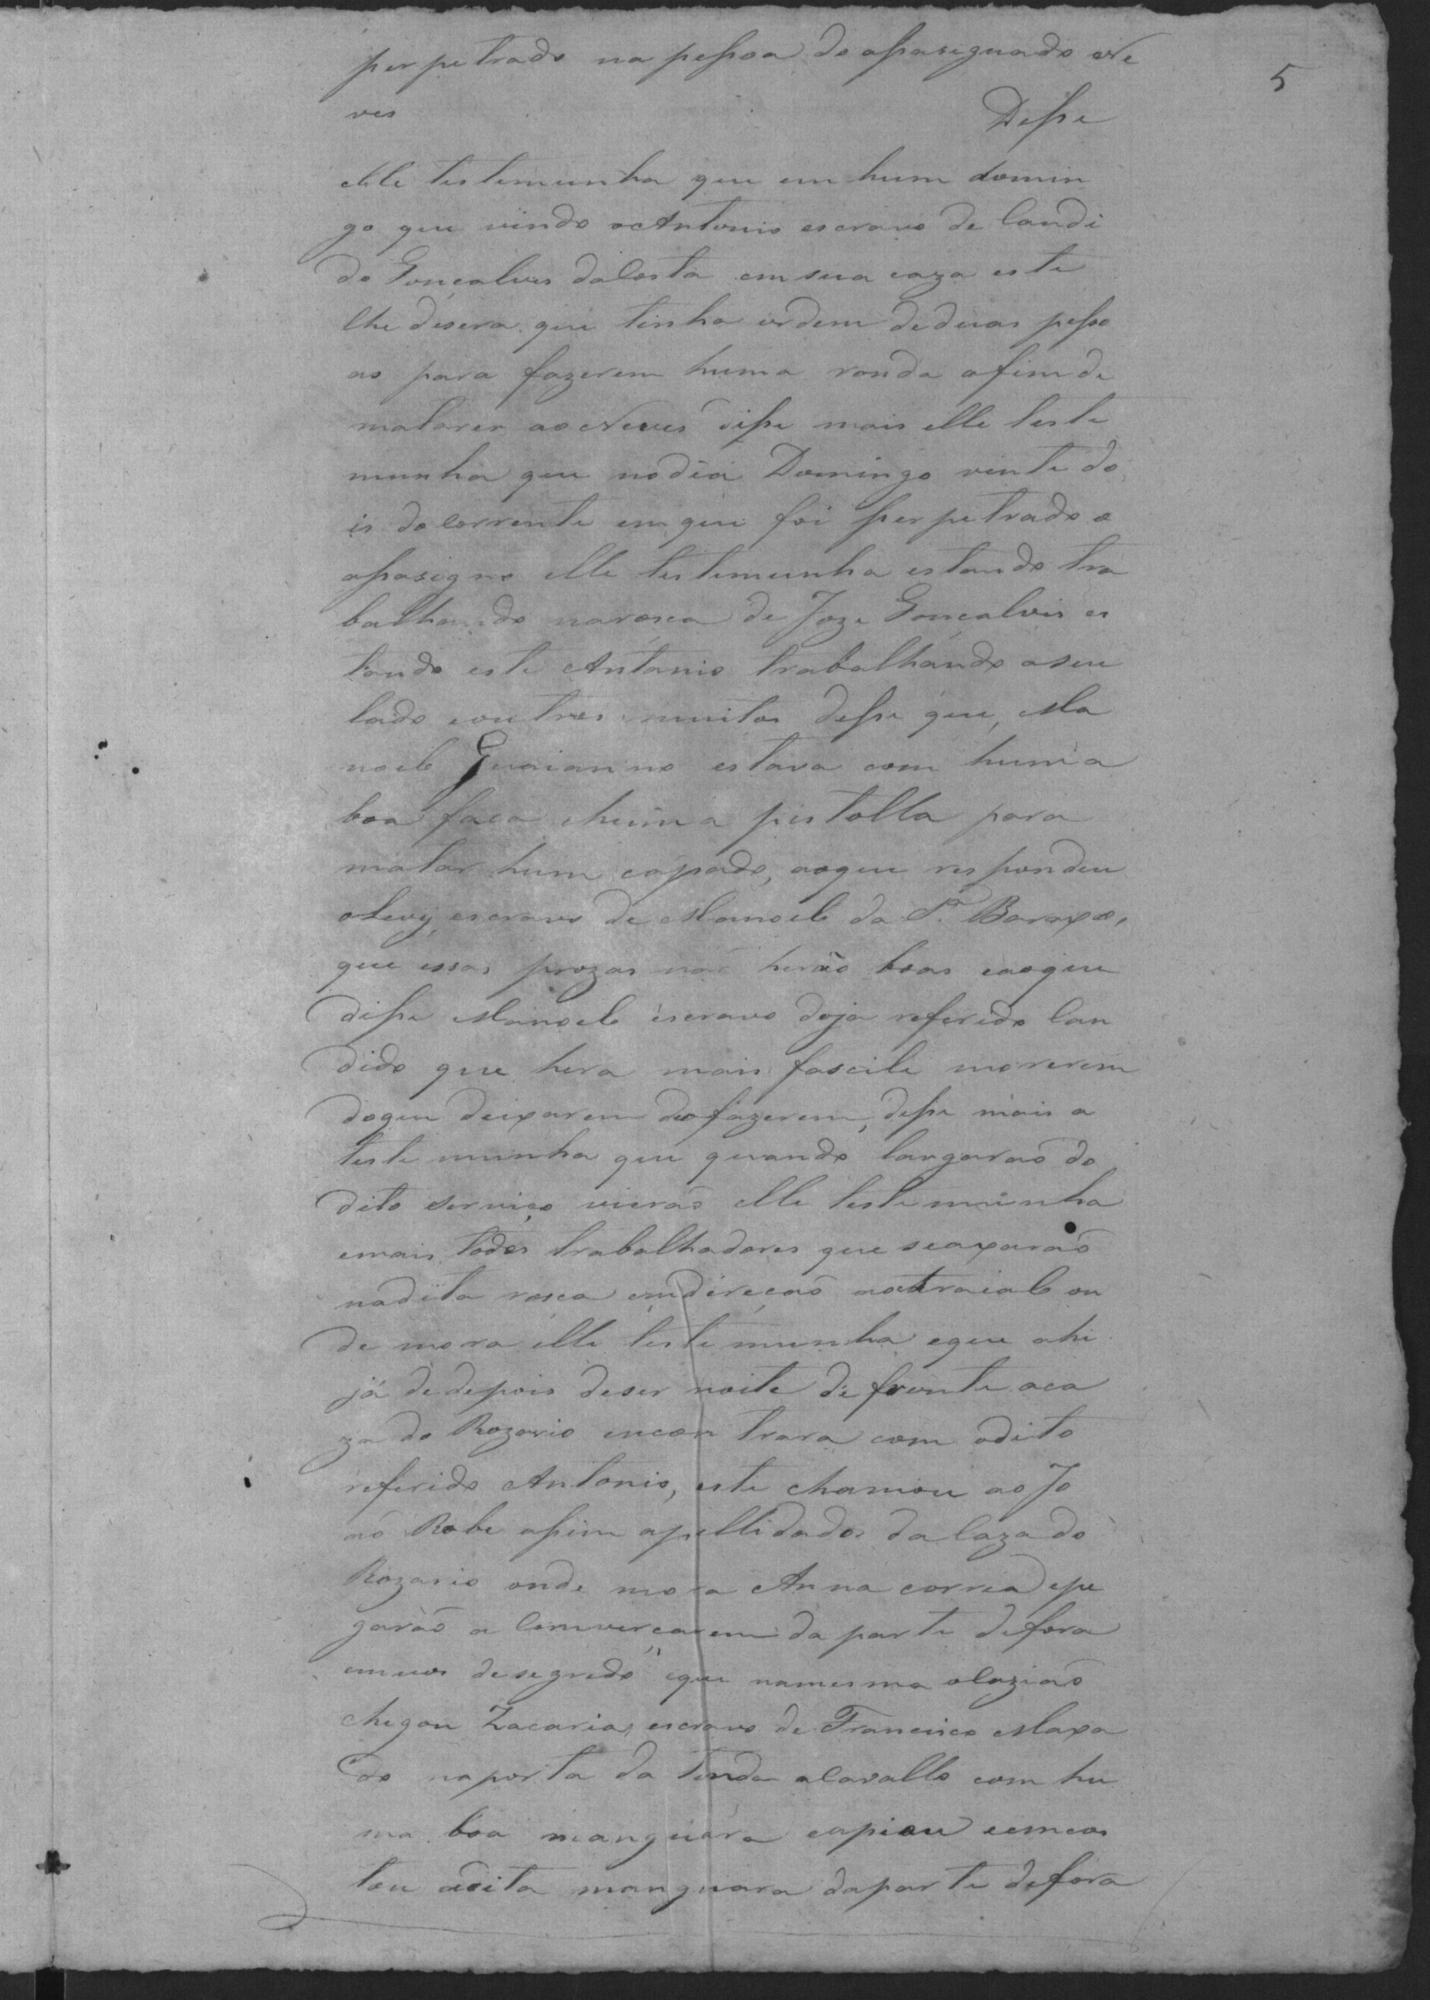 perpetrado na pessoa do assaseguado Ne
5
ves
Desse
elle testemunha que em hum domin
go que vindo o Antonio escravo de Candi
do Gonçalves da Costa em sua caza este
lhe disera que tinha ordem de duas pesso
as para fazerem huma ronda afim de
matarem ao Neves disse mais elle teste
munha que no dia Domingo vinte do
is do corrente em que foi perpetrado o
assasigno elle testemunha estando tra
balhando na rosca de Joze Gonçalvis es
tando este Antonio trabalhando a seu
lado e outros muitos desse que, Ma
noel Guaianno estava com huma
boa faca e huma pistolla para
matar hum capado, ao que respondeu
o Levy, escravo de Manoel da S.ª Baraxo,
que essas prozas não herão boas e ao que
disse Manoel escravo do ja referido Can
dido que hera mais fascile morerem
do que deixarem de o fazerem, desse mais a
teste munha que quando largarão do
dito serviço vierão elle teste munha
e mais todos trabalhadores que se axarão
na dita rosca em direcão ao Atraial on
de mora elle teste munha e que ahi
já de depois de ser noite de fronte a ca
za do Rozario encon trara com o dito
referido Antonio, este chamou ao Jo
ão Robe assim apellidado da Caza do
Rozario onde mora Anna correa e pe
garão a Comverçarem da parte de fora
em vos de segredo e que na mesma oCazião
chegou Zacarias escravo de Francisco Maxa
do na porta da tenda a Cavallo com hu
ma boa manguara e apiou e emcos
tou a dita manguara da parte de fora